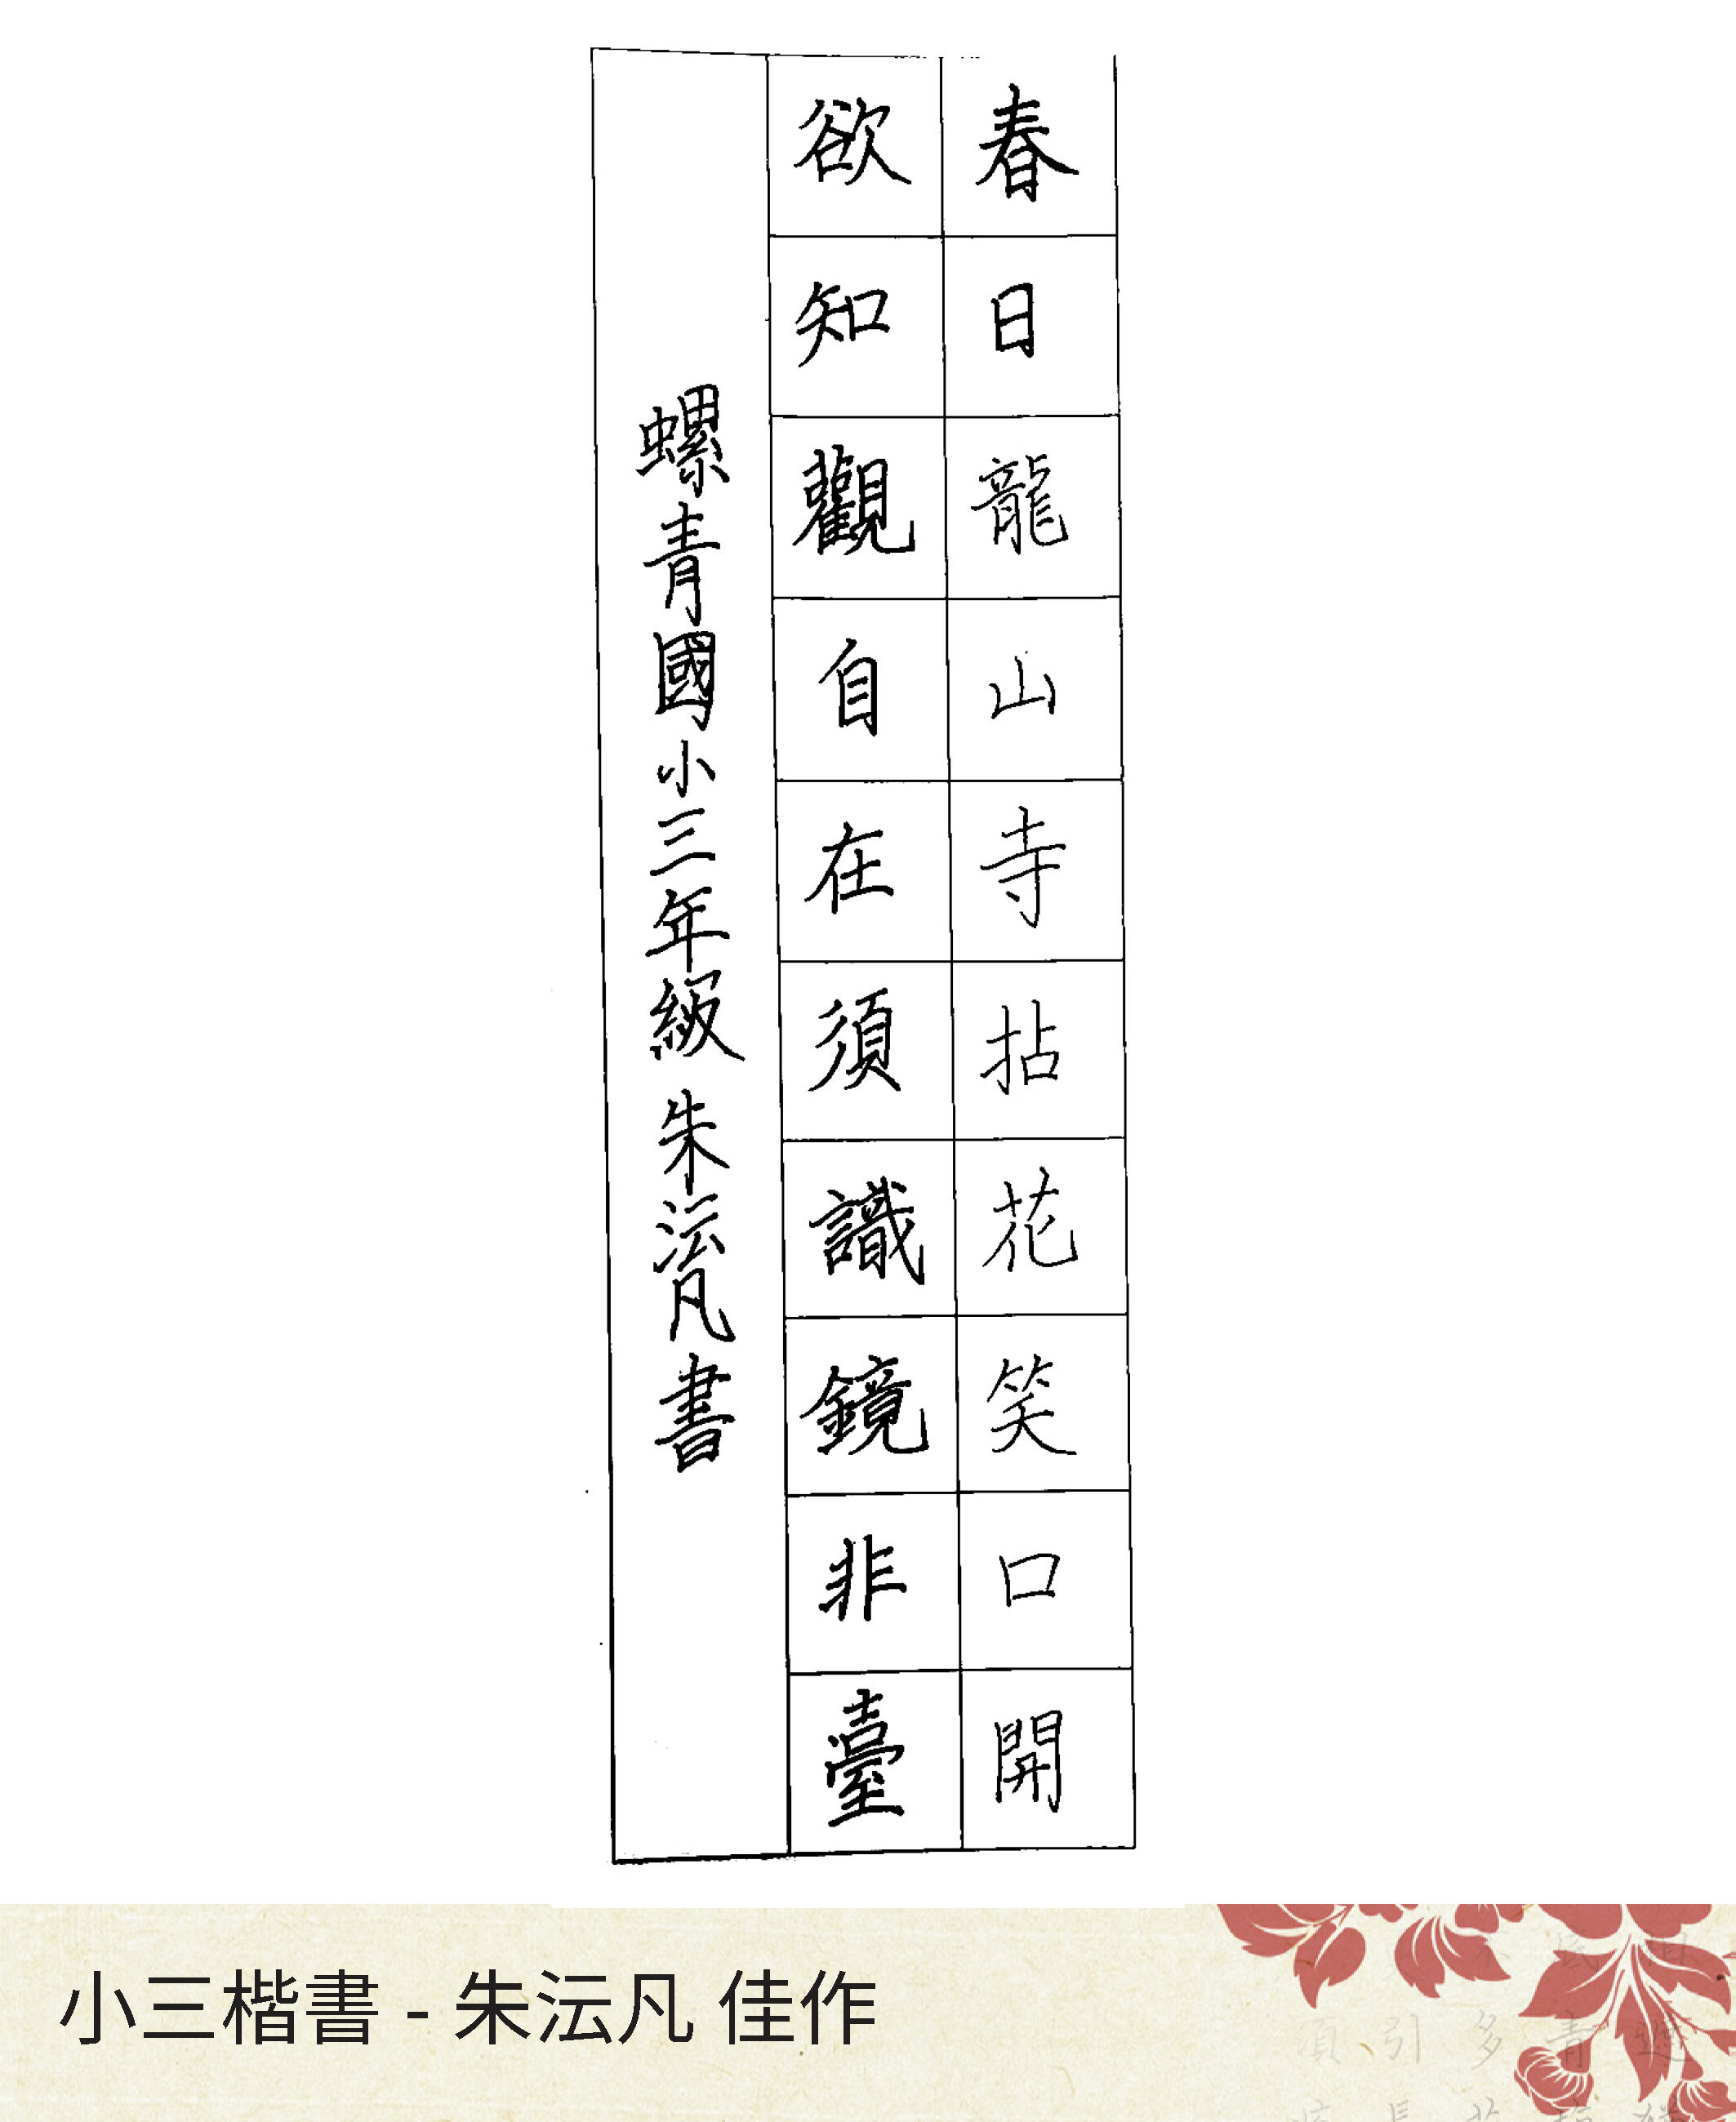 春日龍山寺拈花笑口開
欲知觀自在須識鏡非臺
螺青國小三年級 朱沄凡書
小三楷書 - 朱沄凡 佳作